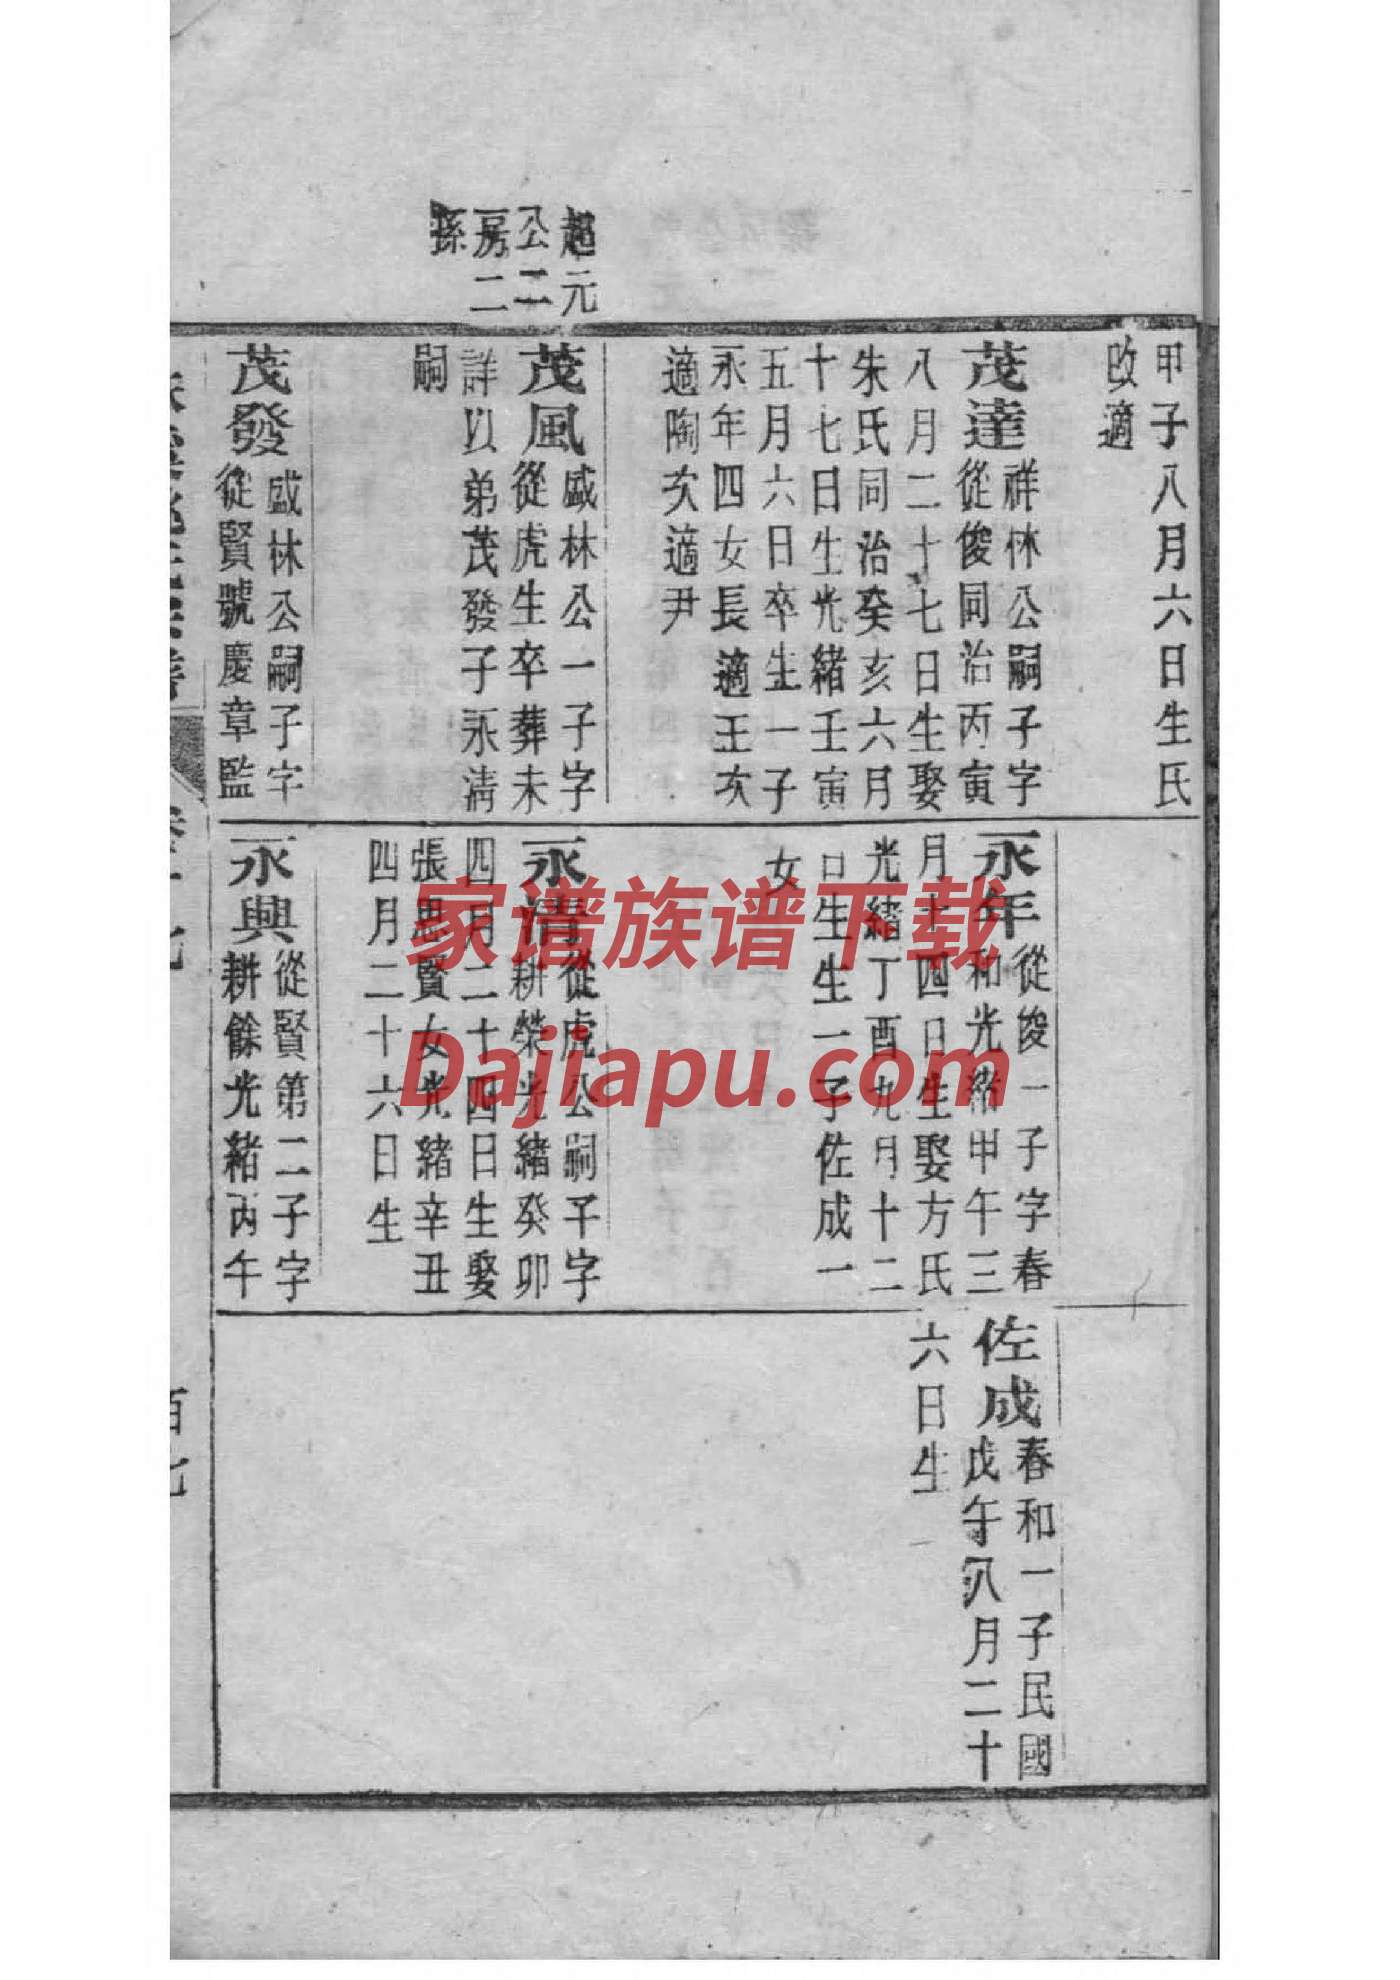 超元
公二
房二
孫
甲子八月六日生氏
改適
茂達
祥林公嗣子字
從俊同治丙寅
八月二十七日生娶
朱氏同治癸亥六月
十七日生光緒壬寅
五月六日卒生一子
永年四女長適王次
適陶次適尹
茂風
盛林公一子字
從虎生卒葬未
詳以弟茂發子永清
嗣
茂發
盛林公嗣子字
從賢號慶章監
永年
從俊一子字春
和光緒甲午三
月十四日生娶方氏
光緒丁酉九月十二
日生生一子佐成一
女
永清
從虎公嗣子字
耕榮光緒癸卯
四月二十四日生娶
張思賢女光緒辛丑
四月二十六日生
永興
從賢第二子字
耕餘光緒丙午
佐成
春和一子民國
戊午八月二十
六日生
家谱族谱下载
Dajiapu.com